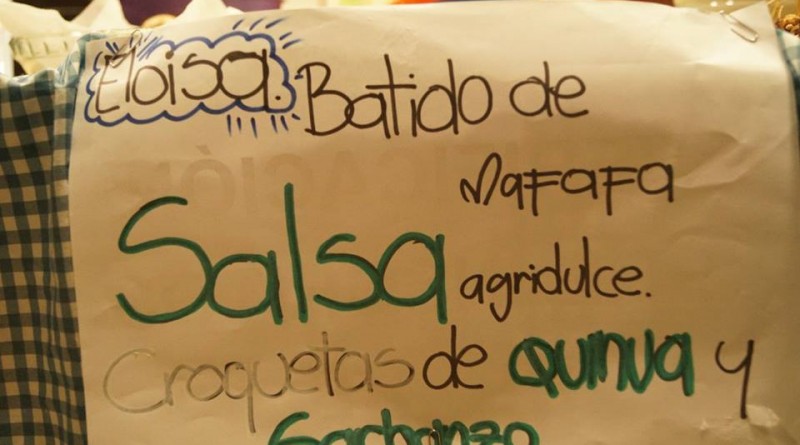 Eloisa. Batido de
MaFaFa
Salsa agridulce.
Croquetas de Quinua y
Garbanzo